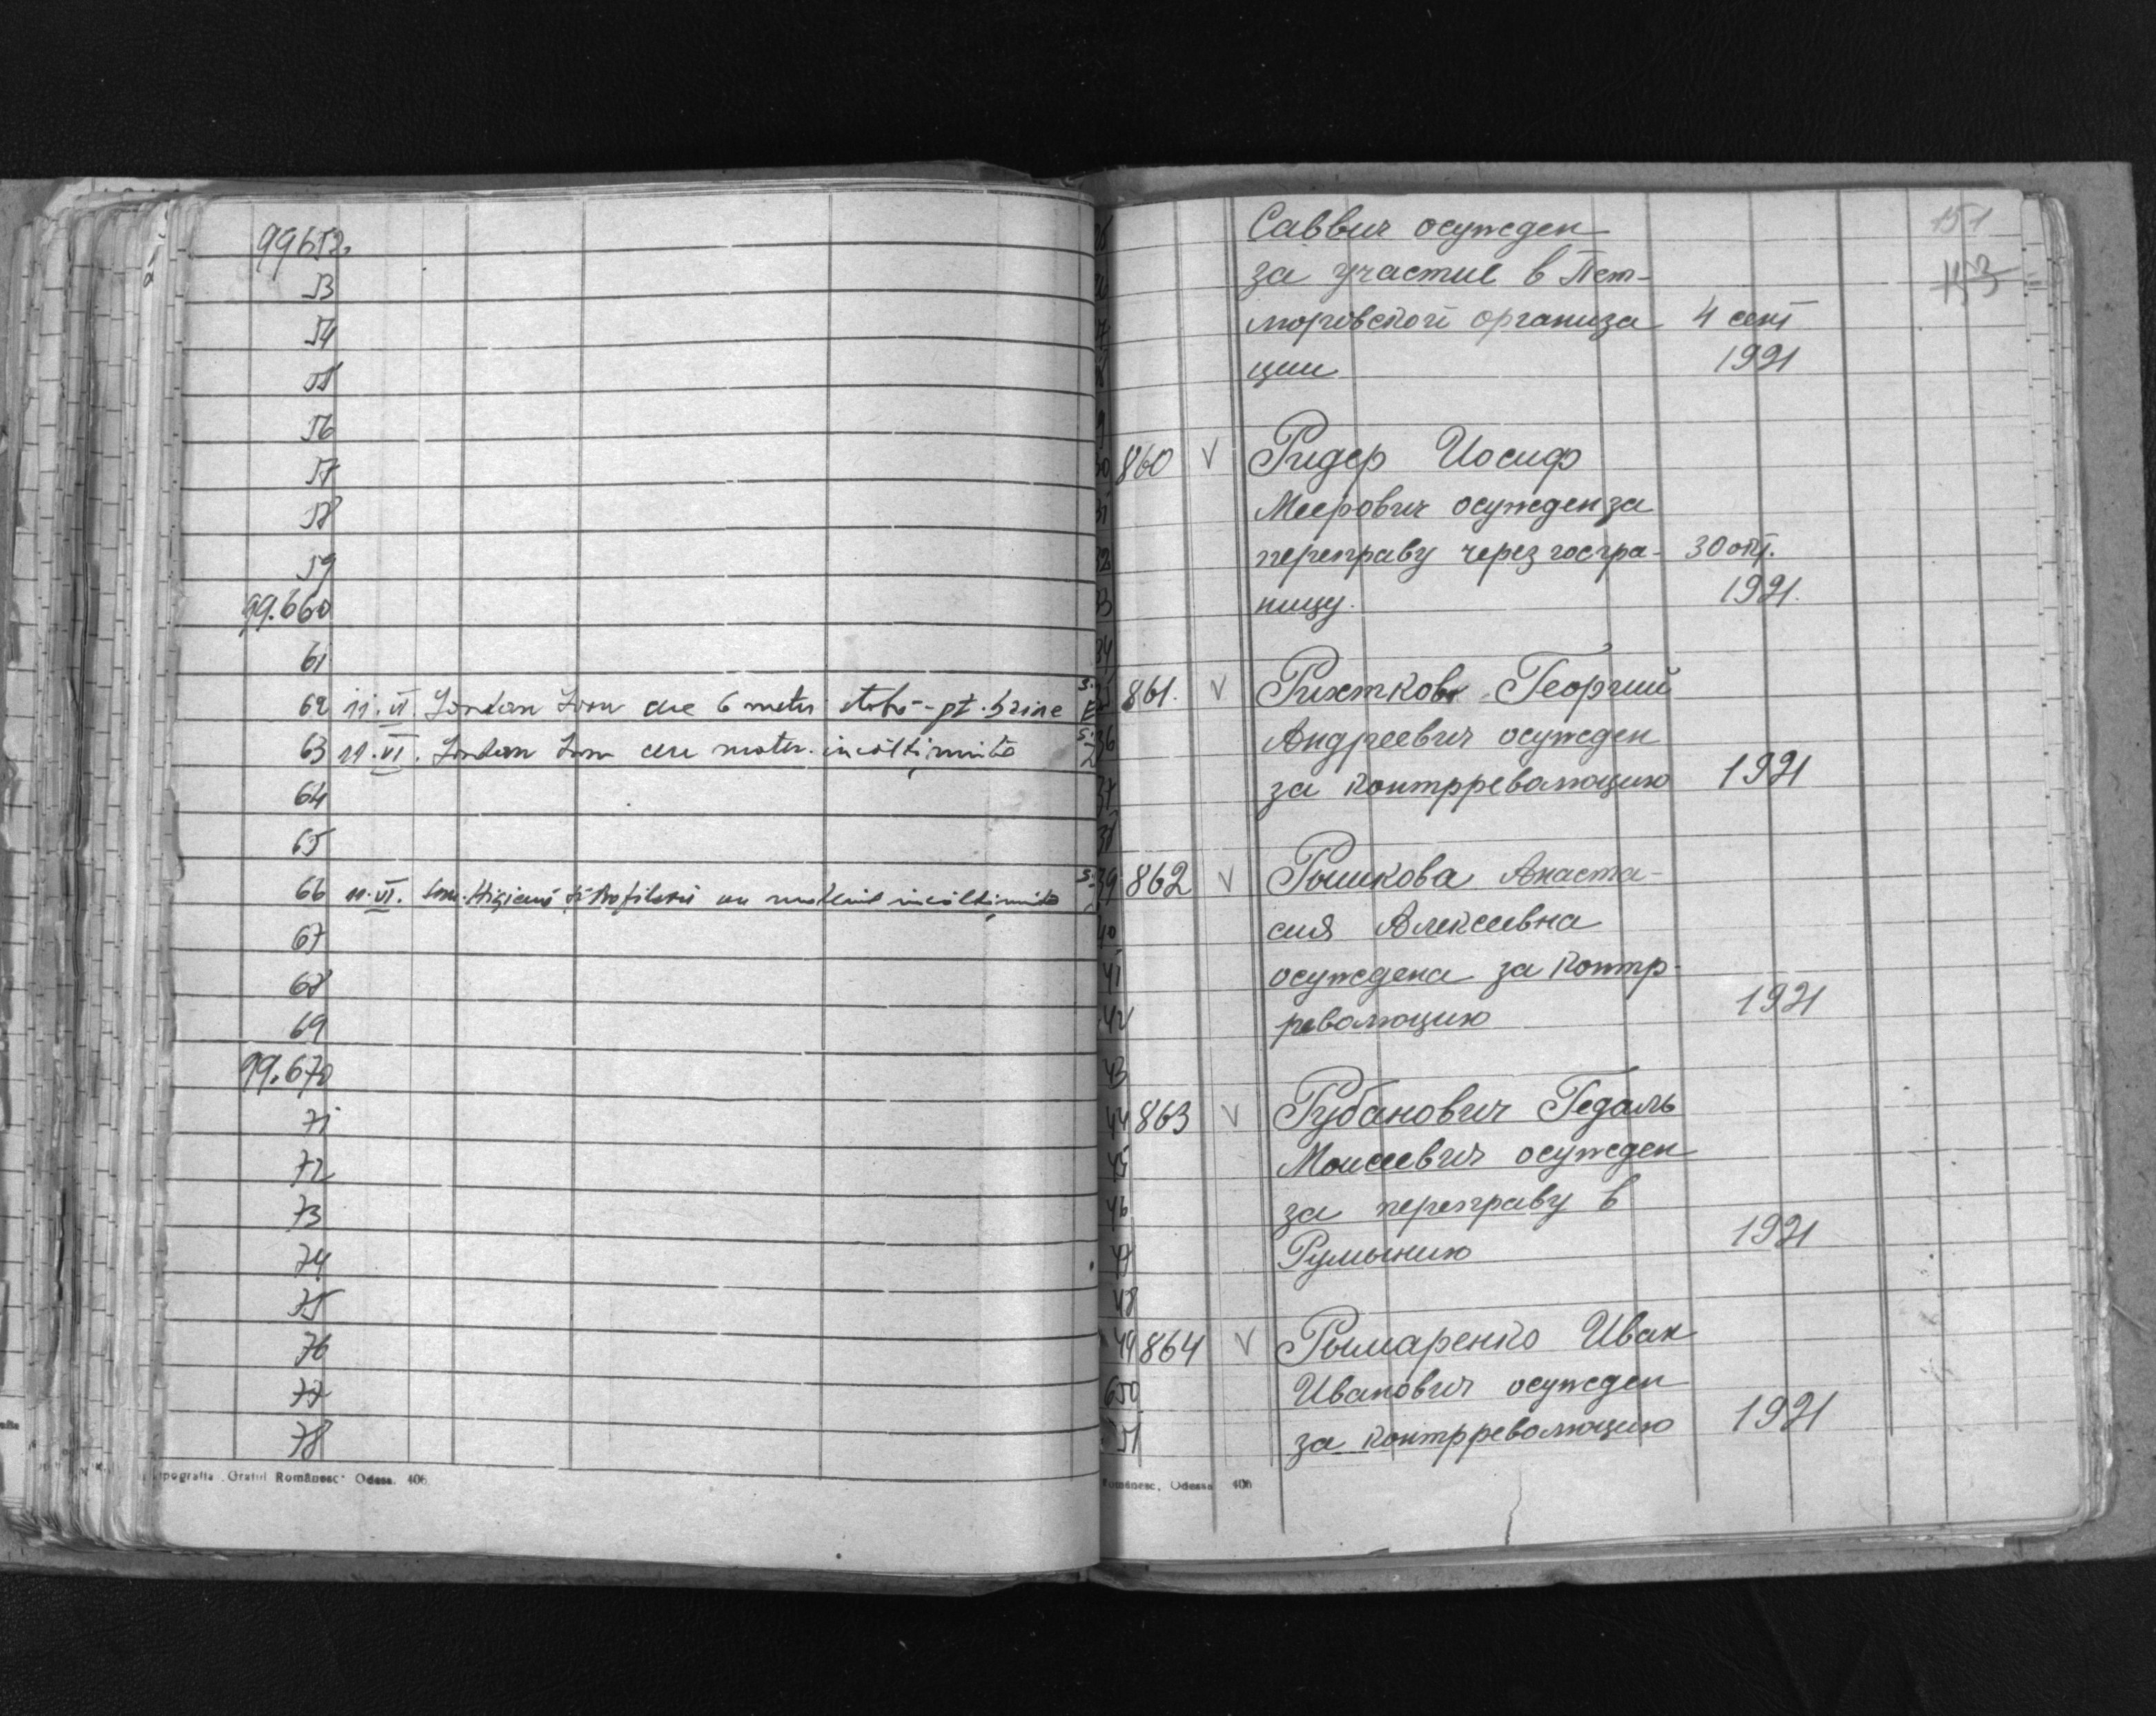 99652.
53
54
55
56
57
58
59
99.660
61
62 11.VI. Iordan Ioan cere 6 metri stofă - pt. haine
63 11.VI. Iordan Ioan cere mater. incălțăminte
64
65
66 11.VI. incălțăminte
67
68
69
99.670
71
72
73
74
75
76
77
78
Tipografia „Graiul Românesc” Odesa. 406
151
153
Саввич осужден
за участие в Пет-
люровской организа 4 сент
ции 1921
860 V Ридер Иосиф
Меерович осужден за
переправу через госгра- 30 окт.
ницу. 1921.
861. V Георгий
Андреевич осужден
за контрреволюцию 1921
39 862 V Рышкова Анаста-
сия Алексеевна
41 осуждена за контр-
42 революцию 1921
43
44 863 V Рубанович Гедаль
45 Моисеевич осужден
46 за переправу в
47 Румынию 1921
48
49 864 V Рымаренко Иван
650 Иванович осужден
51 за контрреволюцию 1921
Românesc, Odessa 406